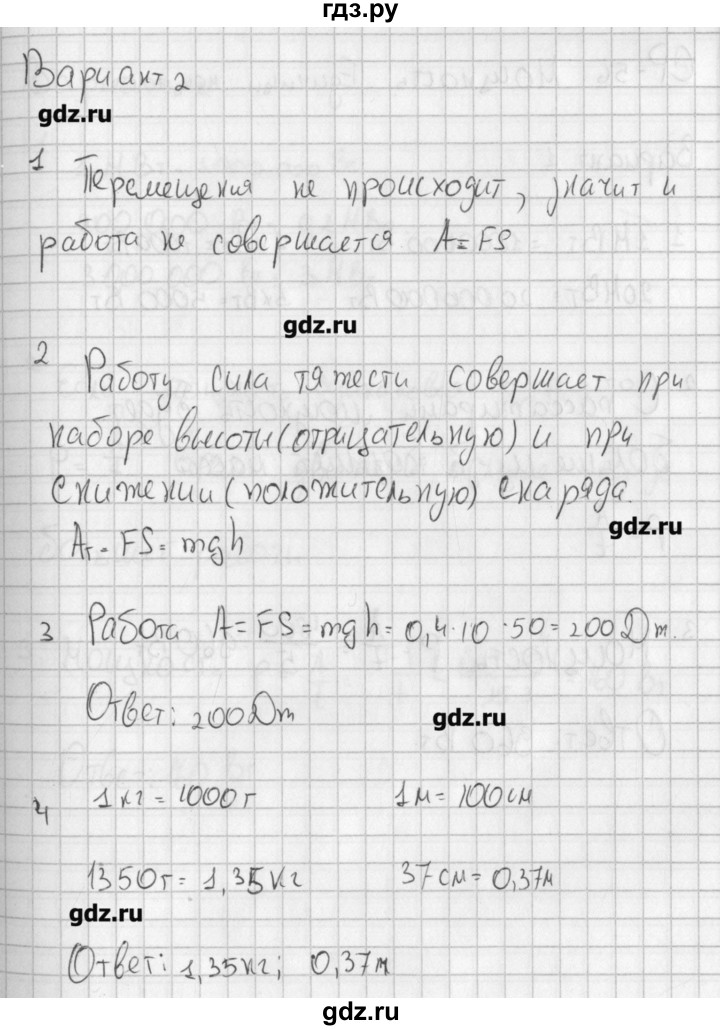 гдз.ру
Вариант 2
gdz.ru
1 Перемещения не происходит, значит и
работа не совершается A=FS
gdz.ru
2 Работу сила тяжести совершает при
наборе высоты (отрицательную) и при
снижении (положительную) снаряда.
gdz.ru
Aт = FS = mgh
3 Работа A = FS = mgh = 0,4·10·50 = 200 Дж.
Ответ: 200 Дж
gdz.ru
4 1 кг = 1000 г 1 м = 100 см
1350 г = 1,35 кг 37 см = 0,37 м
gdz.ru
Ответ: 1,35 кг; 0,37 м
gdz.ru